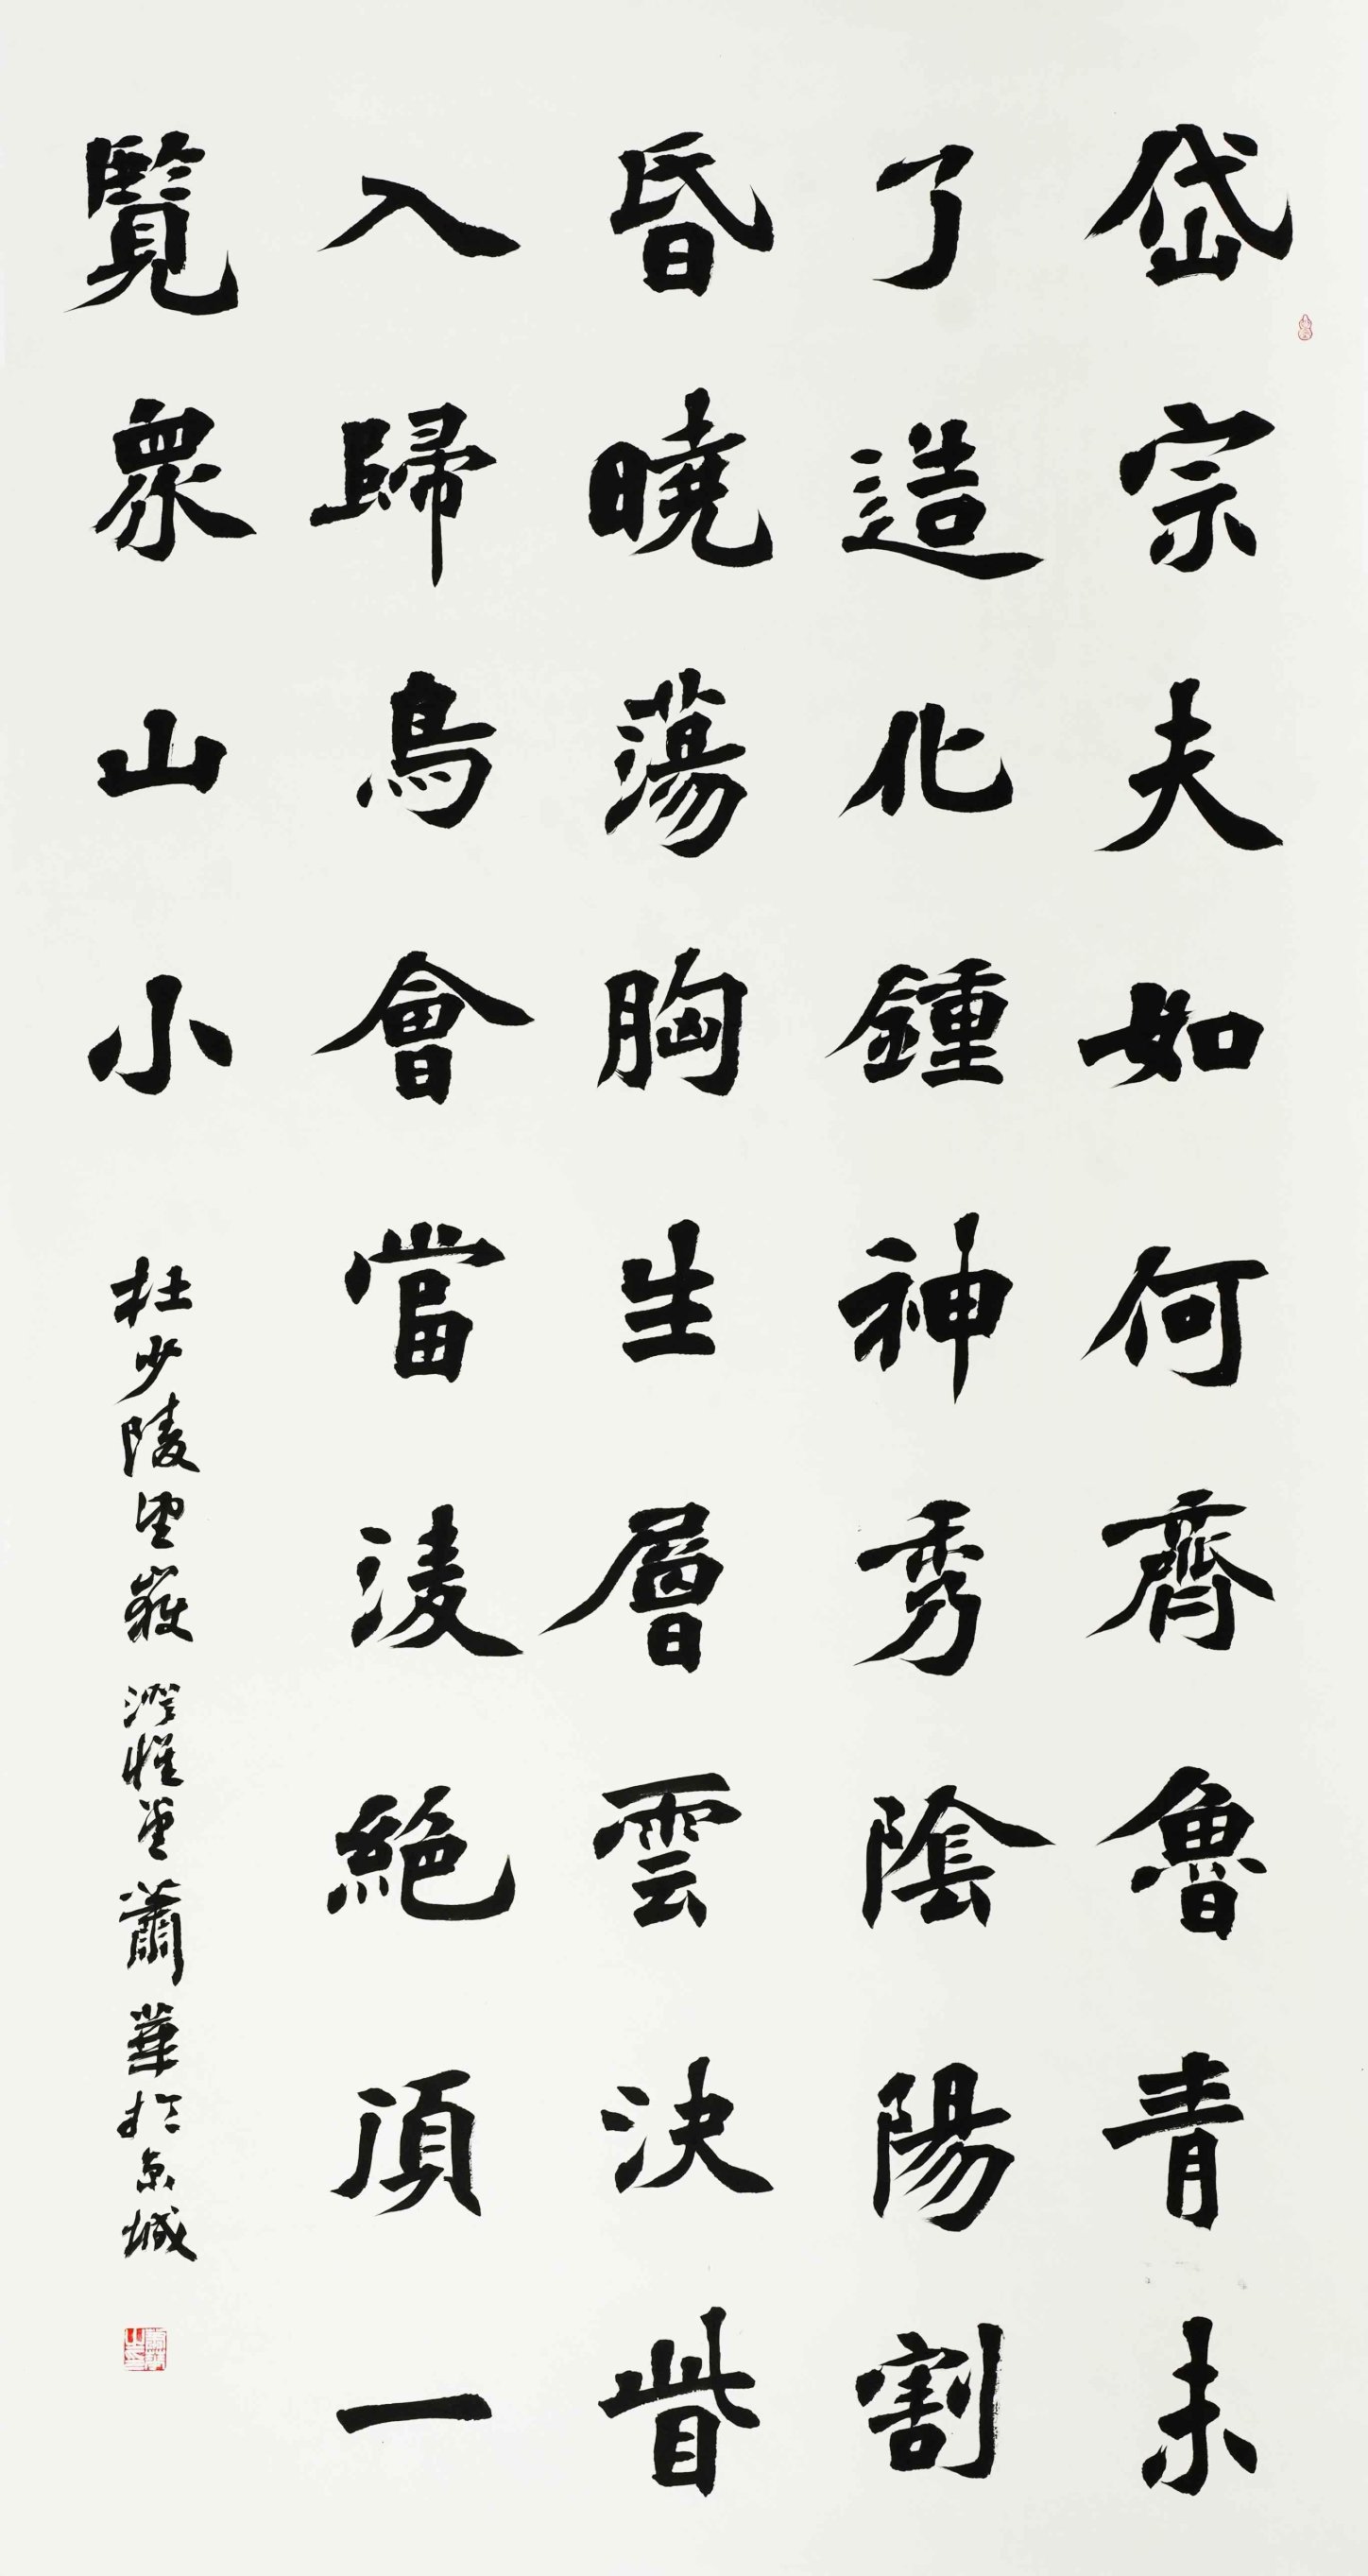 岱宗夫如何齊魯青未
了造化鍾神秀陰陽割
昏曉蕩胸生層雲決眥
入歸鳥會當凌絕頂一
覽眾山小
杜少陵望嶽 堂蕭華於京城